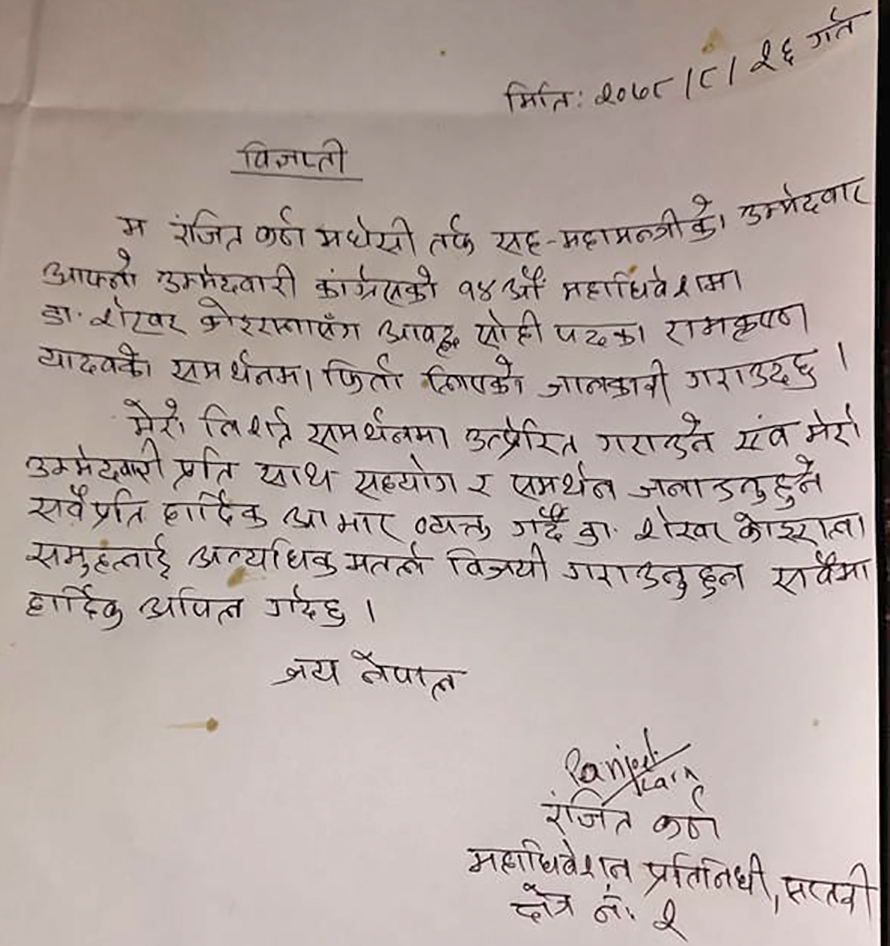 मिति: २०७८/८/२६ गते
विज्ञप्ती
म रंजित कर्ण मधेसी तर्फ सह-महामन्त्रीको उम्मेदवार
आफ्नो उम्मेदवारी कांग्रेसको १४औं महाधिवेशनमा
डा. शेखर कोइरालासँग आवद्ध सोही पदका रामकृष्ण
यादवको समर्थनमा फिर्ता लिएको जानकारी गराउदछु ।
मेरो निशर्त समर्थनमा उत्प्रेरित गराउने एंव मेरो
उम्मेदवारी प्रति साथ सहयोग र समर्थन जनाउनुहुने
सवैप्रति हार्दिक आभार व्यक्त गर्दै डा. शेखर कोइराला
समुहलाई अत्यधिक मतले विजयी गराउनुहुन सवैमा
हार्दिक अपिल गर्दछु ।
जय नेपाल
Ranjeet Karn
रंजित कर्ण
महाधिवेशन प्रतिनिधी, सप्तरी
क्षेत्र नं. २